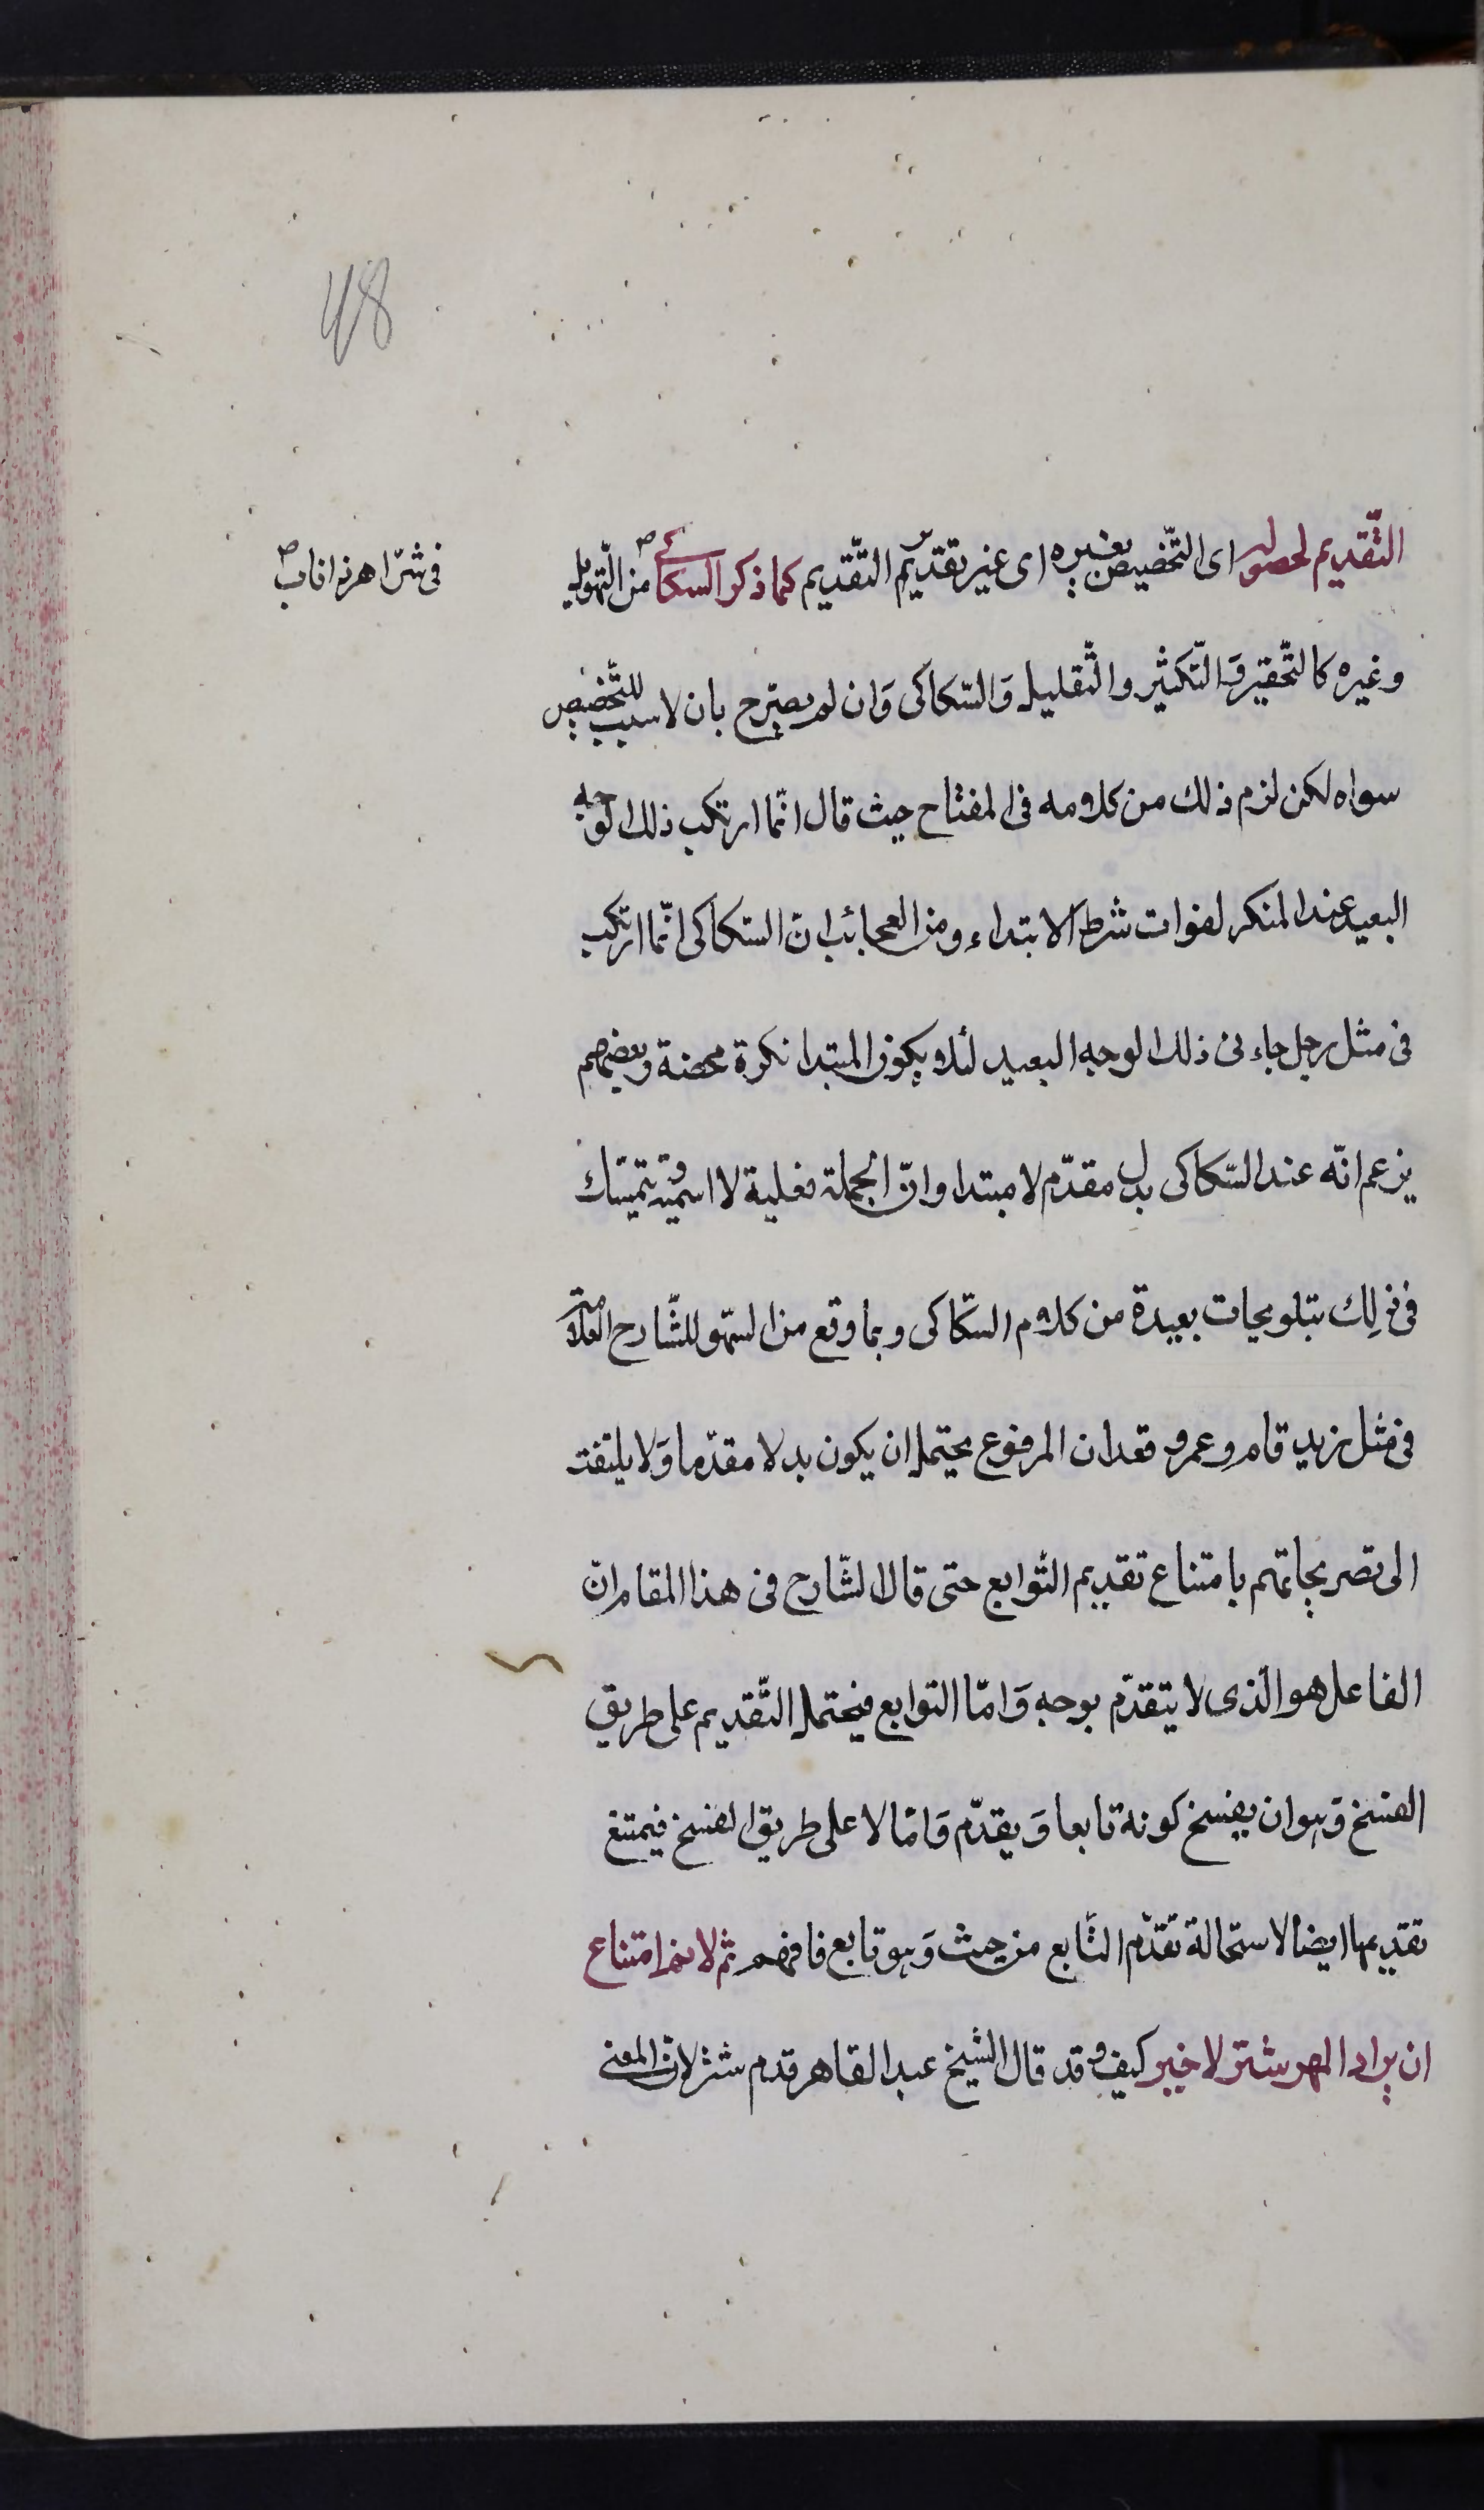 48
التّقديم لحصوله اى التّخصيص بغيره اى غير تقدير التّقديم كما ذكر السكاكى من التّهويل
فى شرّ اهر ذا ناب صح
وغيره كالتّحقير وَالتّكثير والتّقليل وَالسّكاكى وَان لم يصرّح بان لا سبب للتّخصيص
سواه لكن لزم ذلك من كلامه فى المفتاح حيث قال انّما ارتكب ذلك الوجه
البعيد عند المنكر لفوات شرط الابتداء ومن العجائب انّ السّكاكى انّما ارتكب
فى مثل رجل جاءنى ذلك الوجه البعيد لئلا يكون المبتدا نكرة محضة وبعضهم
يزعم انّه عند السّكاكى بدل مقدّم لا مبتدا وانّ الجملة فعلية لا اسميّة ويتمسّك
فى ذلِك بتلويحات بعيدة من كلام السّكاكى وبما وقع من السّهو للشّارح العلامة
فى مثل زيد قام وعمرو قعد ان المرفوع يحتمل ان يكون بدلا مقدّما وَلا يلتفت
الى تصريحاتهم بامتناع تقديم التّوابع حتى قال الشّارح فى هذا المقام انّ
الفاعل هو الّذى لا يتقدّم بوجه وَامّا التوابع فيحتمل التّقديم على طريق
الفسخ وَهو ان يفسخ كونه تابعا وَيقدّم وَامّا لا على طريق الفسخ فيمتنع
تقديمها ايضا لاستحالة تقدّم التّابع من حيث وَهو تابع فافهم ثم لا نم امتناع
ان يراد المهر شرّ لا خير كيف وقد قال الشيخ عبد القاهر قدم شرّ لانّ المعنى